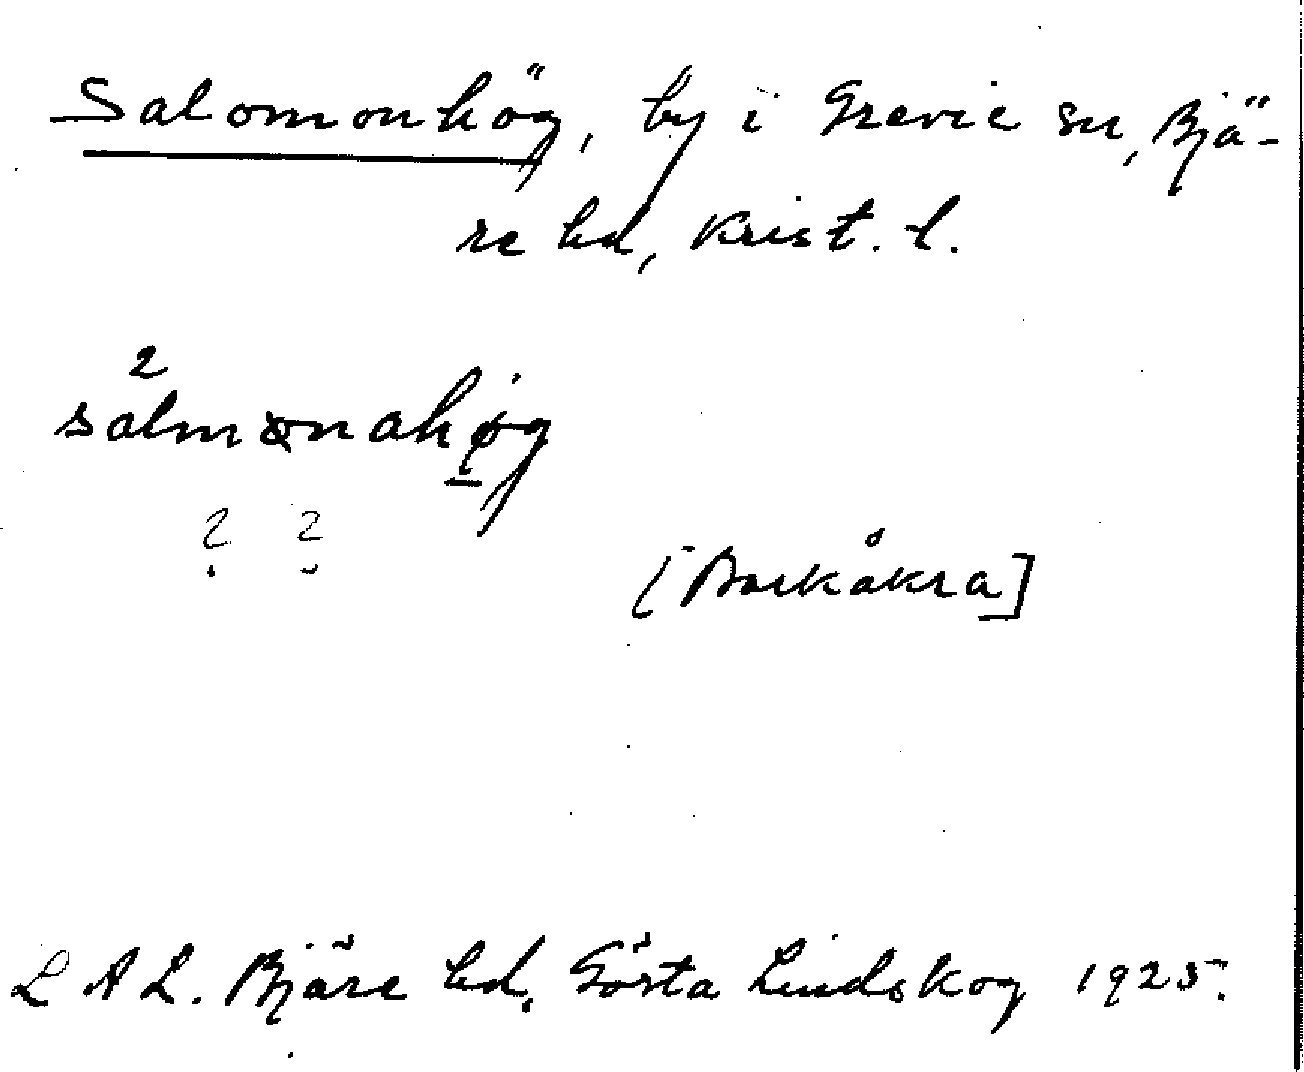 Salomonhög, by i Grevie sn, Bjä-
re hd, Krist. l.
2
salmonahøg
? ?
[Barkåkra]
L A L. Bjäre hd. Gösta Lindskog 1925.